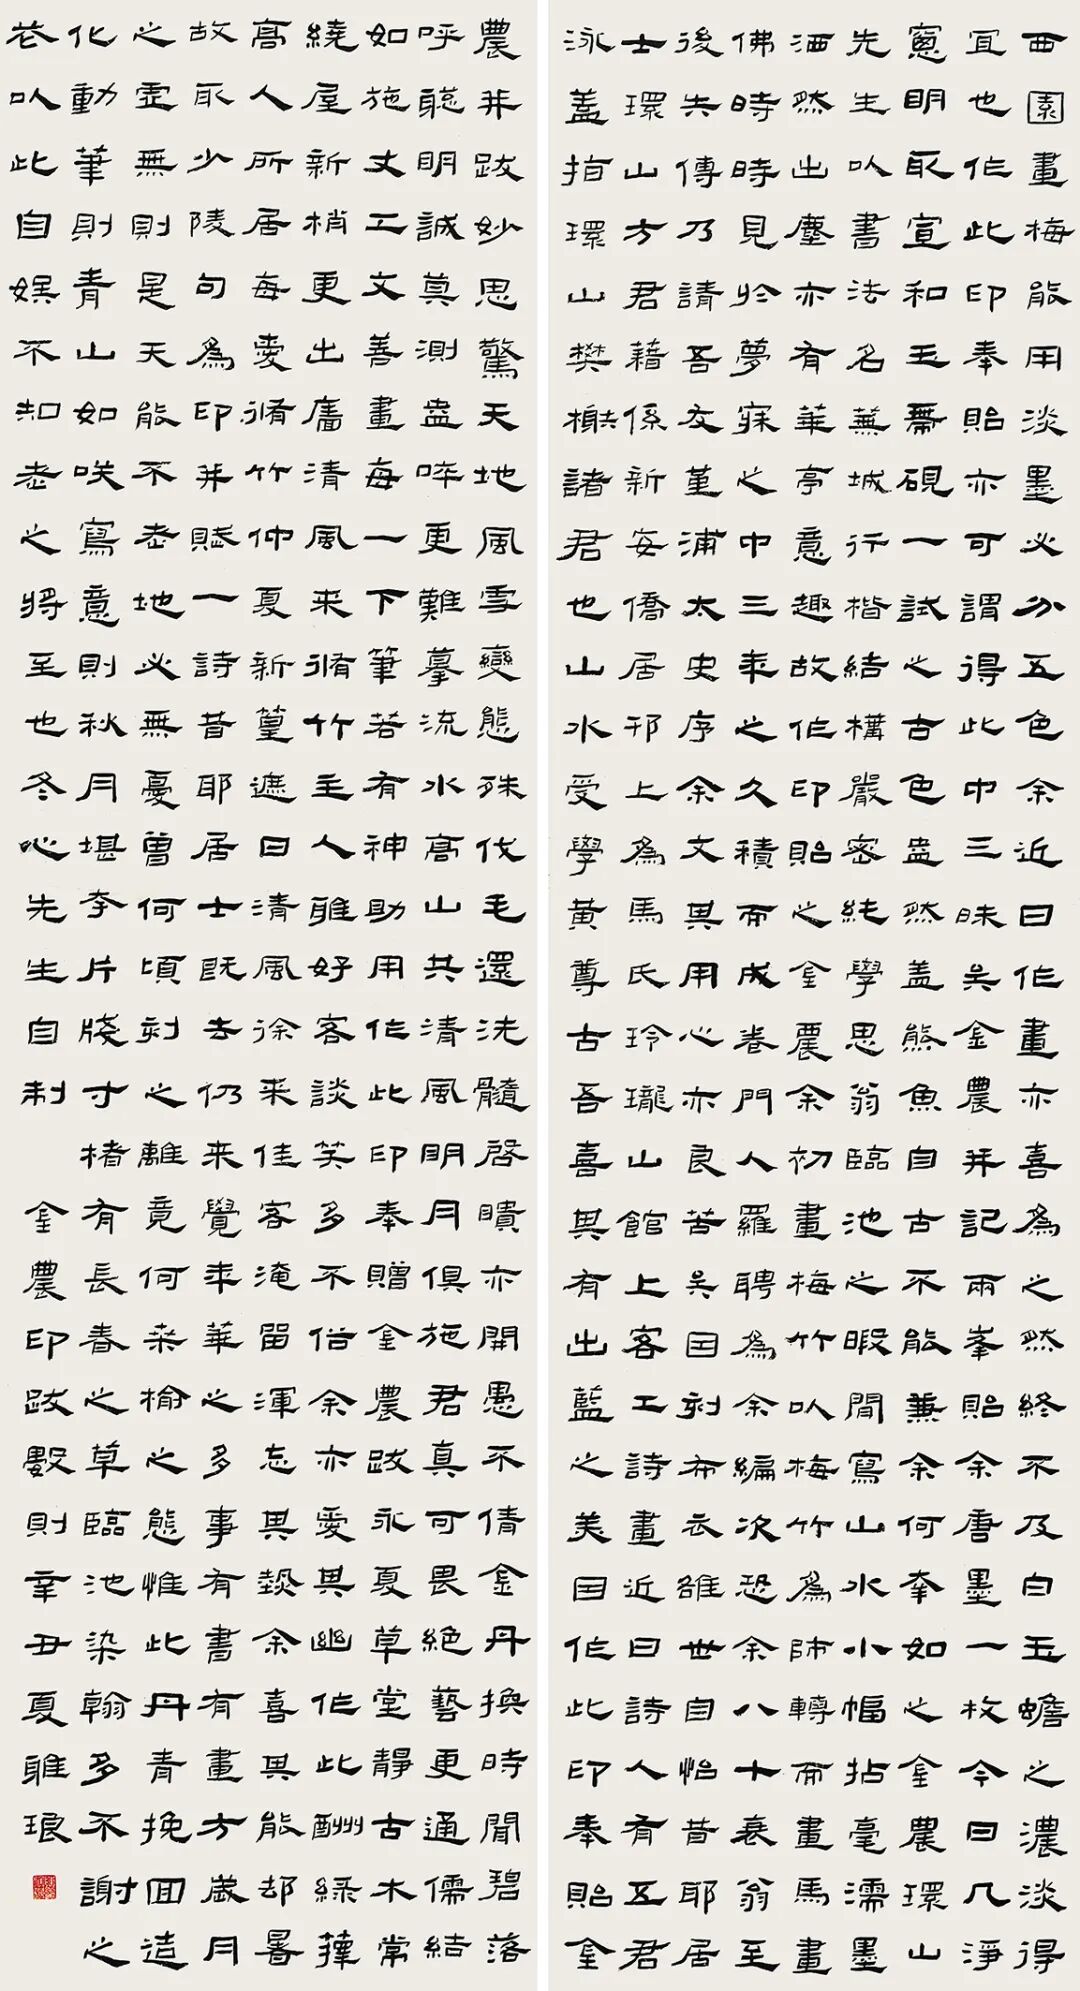 西園畫梅能用淡墨必分五色余近日作畫亦喜為之然終不及白玉蟾之濃淡得
宜也作此印奉貽亦可謂得此中三昧吳金農并記兩峯貽余唐墨一枚今日几淨
窻明取宣和玉薦硯一試之古色盎然蓋熊魚自古不能兼余何奢如之金農環山
先生以書法名蕪城行楷結構嚴密純學思翁臨池之暇間寫山水小幅拈毫濡墨
洒然出塵亦有華亭意趣故作印貽之金農余初畫梅竹以梅竹為師轉而畫馬畫
佛時時見於夢寐之中三年之久積而成卷門人羅聘為余編次恐余八十衰翁至
後失傳乃請吾友堇浦太史序余文其用心亦良苦吳因刻布衣雄世自怡昔耶居
士環山方君藉係新安僑居邗上為馬氏玲瓏山館上客工詩畫近日詩人有五君
泳蓋指環山樊榭諸君也山水受學黃尊古吾喜其有出藍之美因作此印奉貽金
農并跋妙思驚天地風雪變態殊伐毛還洗髓啓聵亦開愚不倩金丹換時聞碧落
呼聰明誠莫測盎啐更難摹流水高山共清風明月俱施君真可畏絕藝更通儒結
如施丈工文善畫每一下筆若有神助用作此印奉贈金農跋永夏草堂靜古木常
繞屋新梢更出廧清風来脩竹主人雅好客談笑多不俗余亦愛其幽作此酬綠蘀
高人所居每愛脩竹仲夏新篁遮日清風徐来佳客淹留渾忘其熱余喜其能却暑
故取少陵句為印并賦一詩昔耶居士既去仍来覺年華之多事有書有畫方歲月
之靈無則是天能不老地必無憂曾何頃刻之離竟何桑榆之態惟此丹青挽回造
化動筆則青山如咲寫意則秋月堪夸片牋寸楮有長春之草臨池染翰多不謝之
花以此自娛不知老之將至也冬心先生自制 金農印跋數則辛丑夏雖琅